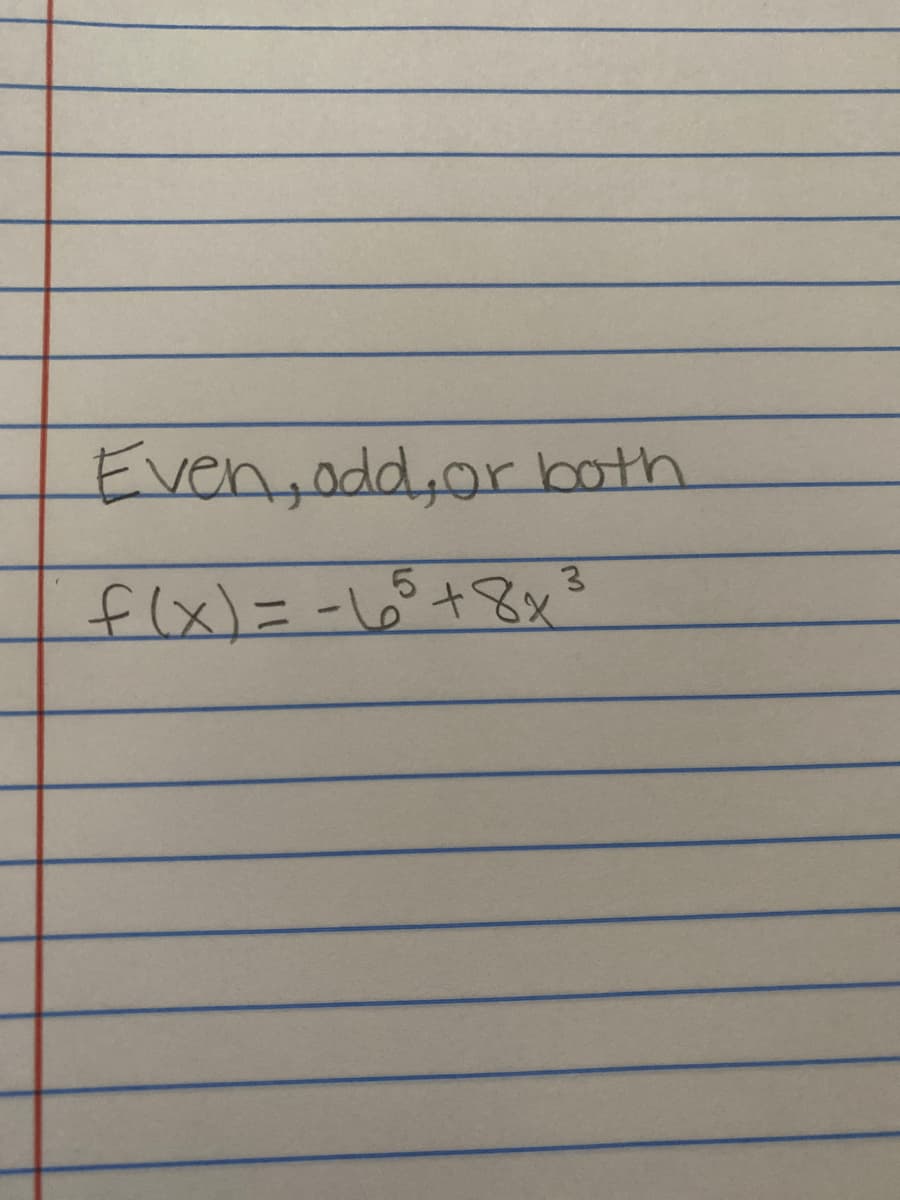 Even, odd, or both
f(x) = -6⁵ + 8x³